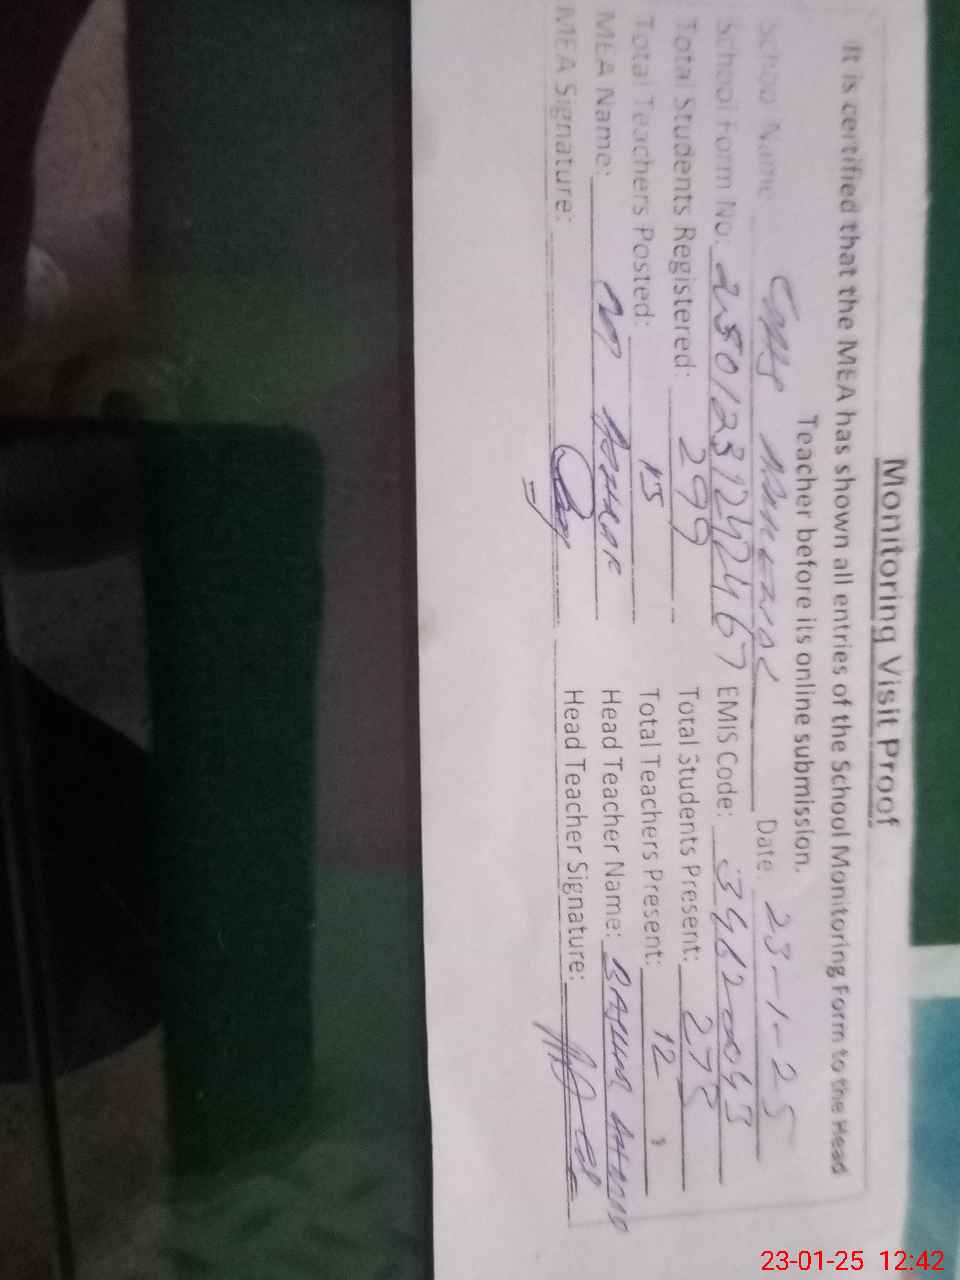 Monitoring Visit Proof
It is certified that the MEA has shown all entries of the School Monitoring Form to the Head
Teacher before its online submission.
School Name Date: 23-1-25
School Form No: EMIS Code:
Total Students Registered: 299 Total Students Present: 275
Total Teachers Posted: 15 Total Teachers Present: 12
MEA Name: M Head Teacher Name:
MEA Signature: Head Teacher Signature:
23-01-25 12:42